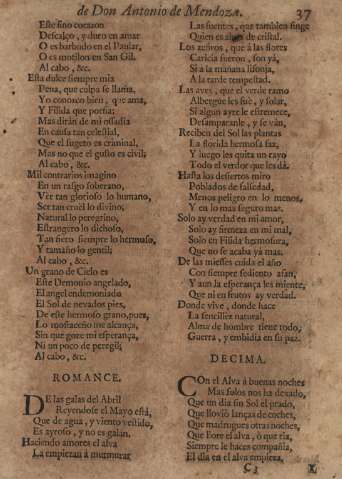 de Don Antonio de Mendoza.
37
Este sino corazon
Descalço, y duro en amar
O es barbado en el Paular,
O es motilon en San Gil.
Al cabo, &c.
Esta dulce siempre mia
Pena, que culpa se llama,
Yo conozco bien, que ama,
Y Filida que porfia:
Mas dirán de mi osadia
En causa tan celestial,
Que el sugeto es criminal,
Mas no que el gusto es civil;
Al cabo, &c.
Mil contrarios imagino
En un rasgo soberano,
Ver tan glorioso lo humano,
Ser tan cruel lo divino;
Natural lo peregrino,
Estrangero lo dichoso,
Tan fiero siempre lo hermoso,
Y tamaño lo gentil;
Al cabo, &c.
Un grano de Cielo es
Este Demonio angelado,
El angel endemoniado
El Sol de nevados pies,
De este hermoso grano, pues,
Lo mostaceño me alcança,
Sin que gore mi esperança,
Ni un poco de peregil;
Al cabo, &c.
ROMANCE.
DE las galas del Abril
Reyendose el Mayo está,
Que de agua, y viento vestido,
Es ayroso, y no es galan.
Haciendo amores el alva
La empiezan à murmurar
Las fuentes, que tambien finge
Quien es de cristal.
Los zefiros, que à las flores
Caricia fueron, son yà,
Si a la mañana lisonja,
A la tarde tempestad.
Las aves, que el verde ramo
Albergue les fue, y solar,
Si algun ayre le estremece,
Desamparanle, y se vàn,
Reciben del Sol las plantas
La florida hermosa faz,
Y luego les quita un rayo
Todo el verdor que les dà.
Hasta los desiertos miro
Poblados de falsedad,
Menos peligro en lo menos,
Y en lo mas seguro mas.
Solo ay verdad en mi amor,
Solo ay firmeza en mi mal,
Solo en Filida hermosura,
Que no se acaba ya mas.
De las miesses cuida el año
Con siempre sediento afan,
Y aun la esperança les miente,
Que ni en frutos ay verdad.
Donde vive, donde hace
La sencillez natural,
Alma de hombre tiene todo,
Guerra, y embidia en su paz.
DECIMA.
COn el Alva à buenas noches
Mas soles nos ha dexado,
Que un dia sin Sol el prado,
Que llovió lanças de coches,
Que madrugues otras noches,
Que llore el alva, ò que ria,
Siempre le haces compañia,
El dia en el alva empieza,